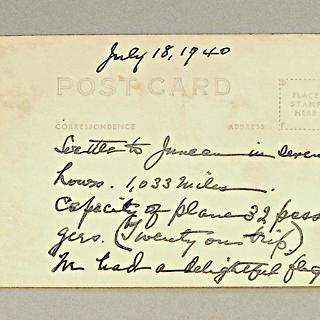 July 18, 1940
POST CARD
PLACE
STAMP
HERE
CORRESPONDENCE
ADDRESS
Seattle to Juneau in seven
hours. 1,033 miles.
Capacity of plane 32 pass
gers. (Twenty on trip)
We had a delightful flig